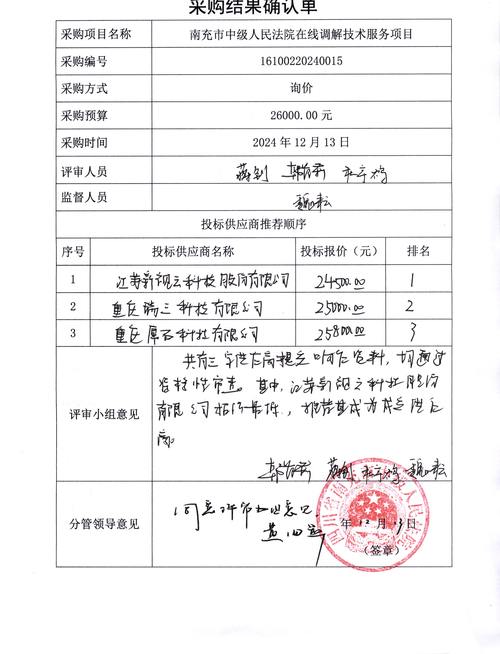 采购结果确认单
采购项目名称 南充市中级人民法院在线调解技术服务项目
采购编号 16100220240015
采购方式 询价
采购预算 26000.00 元
采购时间 2024 年 12 月 13 日
评审人员
监督人员
投标供应商推荐顺序
序号 投标供应商名称 投标报价（元） 排名
1 江苏新视云科技股份有限公司 24500.00 1
2 重庆瑞三科技有限公司 25000.00 2
3 重庆厚石科技有限公司 25800.00 3
共有三家供应商提交响应资料，均通过
资格性审查。其中，江苏新视云科技股份
有限公司报价最低，推荐其成为成交供应
商
评审小组意见
同意评审小组意见
分管领导意见
年 12 月 13 日
（签章）